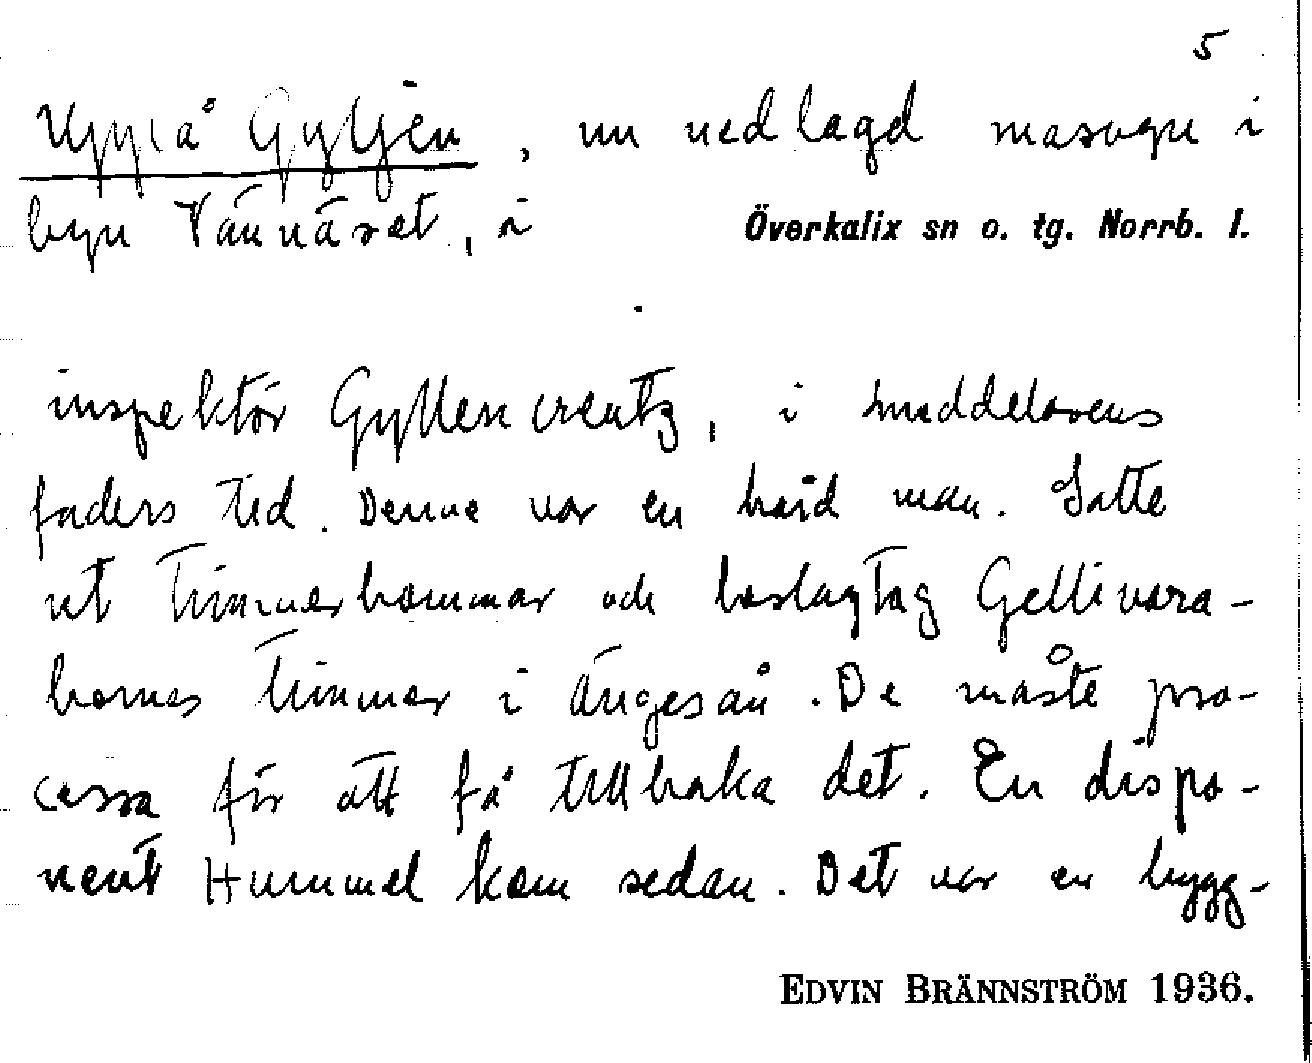 5
Uppå Gyljen, nu nedlagd masugn i
byn Vännäset, i Överkalix sn o. tg. Norrb. l.
inspektör Gyllencreutz, i meddelarens
faders tid. Denne var en hård man. Satte
ut timmerbommar och beslagtag Gellivara-
bornas timmer i Ängesån. De måste pro-
cessa för att få tillbaka det. En dispo-
nent Hummel kom sedan. Det var en bygg-
EDVIN BRÄNNSTRÖM 1936.